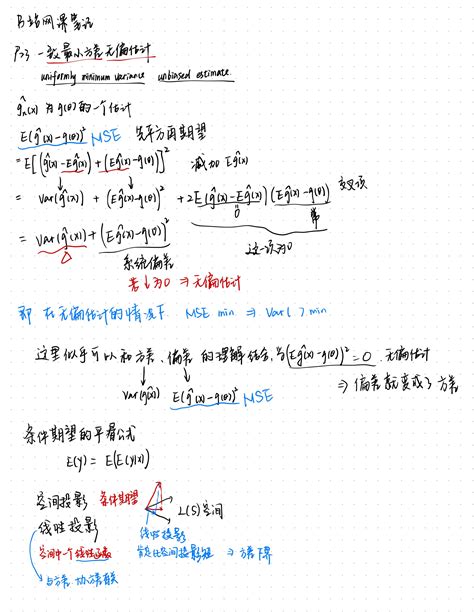 B站网课笔记
P23 一致最小方差无偏估计
uniformly minimum variance unbiased estimate.
ĝₙ(x) 为 g(θ) 的一个估计
E(ĝ(x)-g(θ))² MSE 先平方再期望
= E[(ĝ(x)-Eĝ(x)) + (Eĝ(x)-g(θ))]² 减加 Eĝ(x)
= Var(ĝ(x)) + (Eĝ(x)-g(θ))² + 2E(ĝ(x)-Eĝ(x))(Eĝ(x)-g(θ)) 交叉项
0 常
= Var(ĝ(x)) + (Eĝ(x)-g(θ))² 这一项为0
△ 系统偏差
若↓为0 ⇒ 无偏估计
即 在无偏估计的情况下. MSE min ⇒ Var( ) min
这里似乎可以和方差、偏差的理解结合, 当(Eĝ(x)-g(θ))² = 0 无偏估计
Var(ĝ(x)) E(ĝ(x)-g(θ))² MSE ⇒ 偏差就变成了方差
条件期望的平滑公式
E(y) = E(E(y|x))
空间投影 条件期望 L(S)空间
线性投影 线性投影
空间中一个线性函数 ⇒ 方差下界
与方差、协方差有关